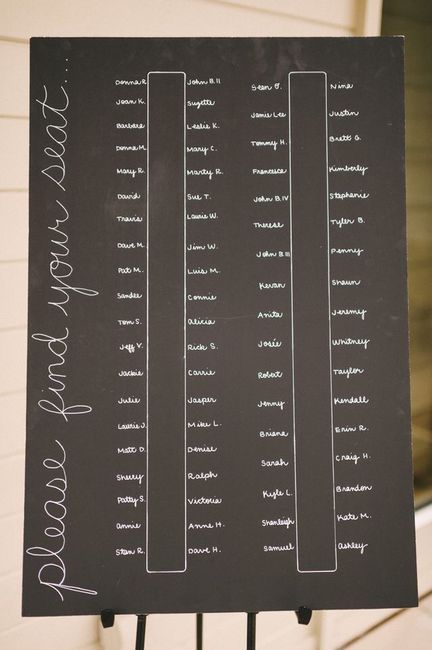 please find your seat...
Donna R.
Joan K.
Barbara
Donna M.
Mary R.
David
Travis
Dave M.
Pat M.
Sandee
Tom S.
Jeff V.
Jackie
Julie
Laurie J.
Matt D.
Sherry
Patty S.
Annie
Stan R.
John B.II
Suzette
Leslie K.
Mary C.
Marty R.
Sue T.
Laurie W.
Jim W.
Luis M.
Connie
Alicia
Rick S.
Carrie
Jasper
Mike L.
Denise
Ralph
Victoria
Anne H.
Dave H.
Sean O.
Jamie Lee
Tommy H.
Francesca
John B.IV
Therese
John B.III
Kevan
Anita
Josie
Robert
Jenny
Briana
Sarah
Kyle L.
Shanleigh
Samuel
Nina
Justin
Brett G.
Kimberly
Stephanie
Tyler B.
Penny
Shaun
Jeremy
Whitney
Taylor
Kendall
Erin R.
Craig H.
Brandon
Kate M.
Ashley